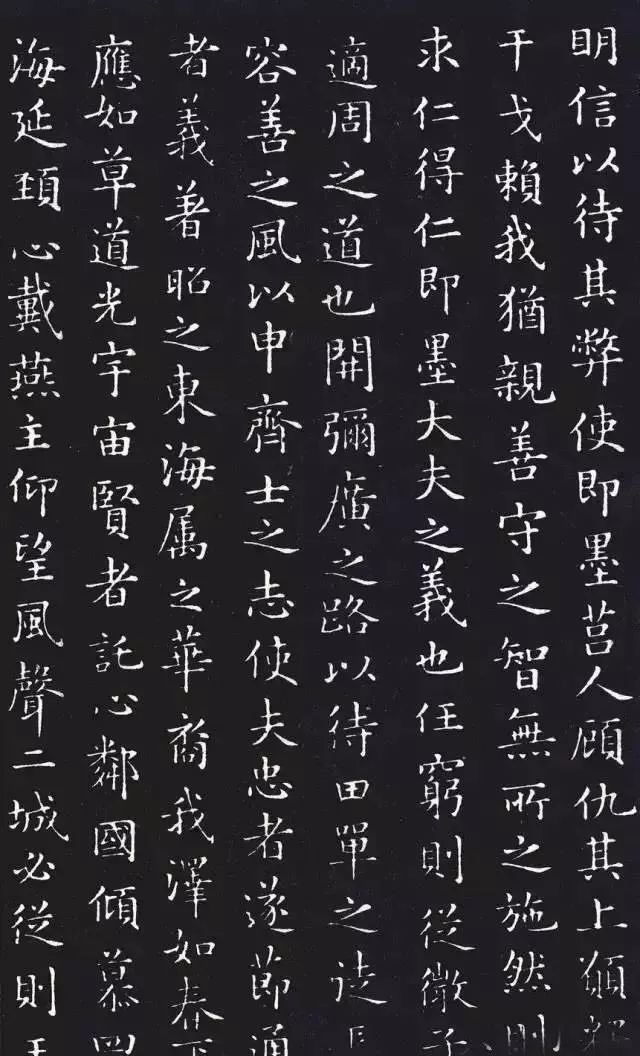 明信以待其弊使即墨莒人顧仇其上願
干戈賴我猶親善守之智無所之施然則
求仁得仁即墨大夫之義也任窮則從微子
適周之道也開彌廣之路以待田單之徒
容善之風以申齊士之志使夫忠者遂節通
者義著昭之東海属之華裔我澤如春下
應如草道光宇宙賢者託心鄰國傾慕四
海延頸心戴燕主仰望風聲二城必從則王